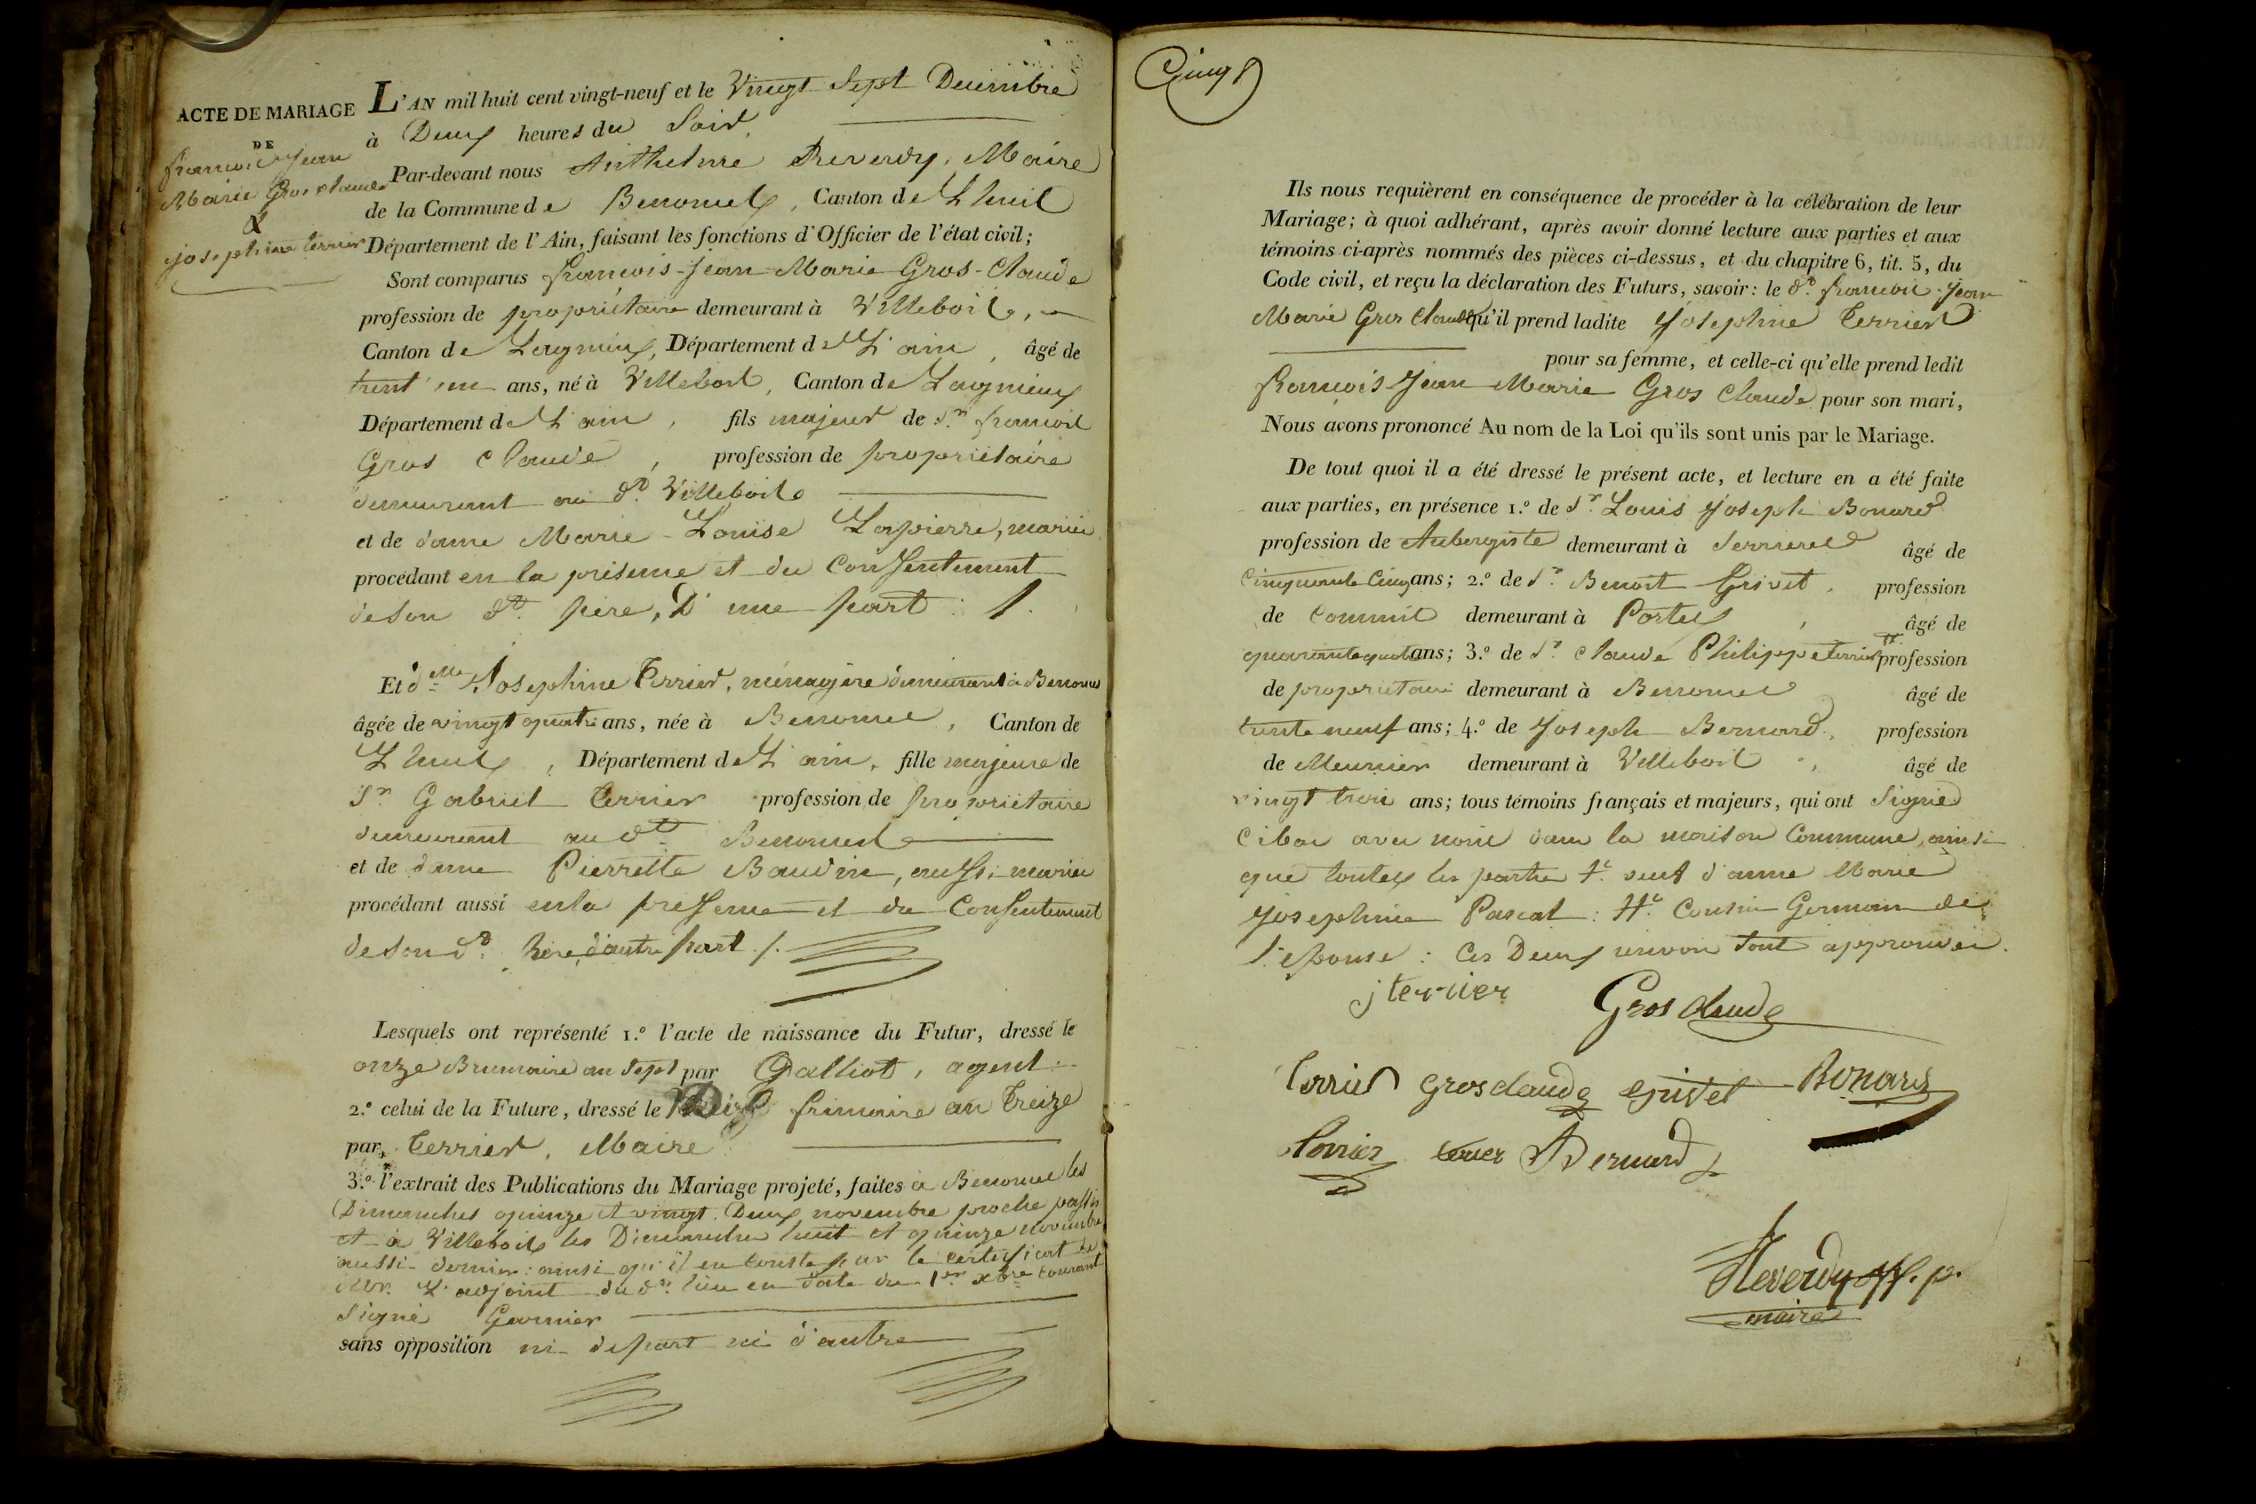 ACTE DE MARIAGE
DE
françois Jean
Marie Gros Claude
&
josephine terrier
L'AN mil huit cent vingt-neuf et le Vingt Sept Decembre
à Deux heures du Soir
Par-devant nous Anthelme Reverdy, Maire
de la Commune de Benonces, Canton de Lhuis
Département de l'Ain, faisant les fonctions d'Officier de l'état civil;
Sont comparus françois-Jean-Marie Gros-Claude
profession de propriétaire demeurant à Villebois,
Canton de Lagnieux, Département de L'ain, âgé de
trent'un ans, né à Villebois, Canton de Lagnieux
Département de L'ain, fils majeur de Sr. françois
Gros Claude, profession de propriétaire
demeurant au dt. Villebois
et de dame Marie-Louise Lapierre, mariés
procédant en la présence et du Consentement
de son dt. père, D'une part :
Et dlle. Josephine Terrier, ménagère demeurant à Benonces
âgée de vingt quatre ans, née à Benonces, Canton de
Lhuis, Département de L'ain, fille majeure de
Sr. Gabriel Terrier profession de propriétaire
demeurant au dt. Benonces
et de dame Pierrette Baudin, aussi mariés
procédant aussi en la présence et du Consentement
de son dt. Père, d'autre part
Lesquels ont représenté 1.° l'acte de naissance du Futur, dressé le
onze Brumaire an Sept par Galliot, agent
2.° celui de la Future, dressé le Dix frimaire an Treize
par Terrier, Maire
3.° l'extrait des Publications du Mariage projeté, faites à Benonces les
Dimanches quinze et vingt-Deux novembre proche passés
et à Villebois les Dimanches huit et quinze novembre
aussi dernier : ainsi qu'il en conste par le certificat de
Mr. L'adjoint du dt. lieu en date du 1er. xbre courant
Signé Garnier
sans opposition ni de part ni d'autre
Cinq
Ils nous requièrent en conséquence de procéder à la célébration de leur
Mariage; à quoi adhérant, après avoir donné lecture aux parties et aux
témoins ci-après nommés des pièces ci-dessus, et du chapitre 6, tit. 5, du
Code civil, et reçu la déclaration des Futurs, savoir: le dt. françois Jean
Marie Gros Claude qu'il prend ladite Josephine Terrier
pour sa femme, et celle-ci qu'elle prend ledit
françois Jean Marie Gros Claude pour son mari,
Nous avons prononcé Au nom de la Loi qu'ils sont unis par le Mariage.
De tout quoi il a été dressé le présent acte, et lecture en a été faite
aux parties, en présence 1.° de Sr. Louis Joseph Bonard
profession de Aubergiste demeurant à Serrieres âgé de
Cinquante Cinq ans; 2.° de Sr. Benoit Grivet, profession
de Commis demeurant à Portes, âgé de
quarante quatre ans; 3.° de Sr. Claude Philippe terrier profession
de propriétaire demeurant à Benonces âgé de
trente neuf ans; 4.° de Joseph Bernard, profession
de Meunier demeurant à Villebois, âgé de
vingt trois ans; tous témoins français et majeurs, qui ont Signé
avec nous dans la maison Commune, ainsi
que toutes les parties
Josephine Pascal : Cousin Germain de
l'épouse : Ces Deux renvois sont approuvés.
j terrier
Gros claude
Terrier grosclaude grivet Bonard
terrier Bernard
Reverdy
maire